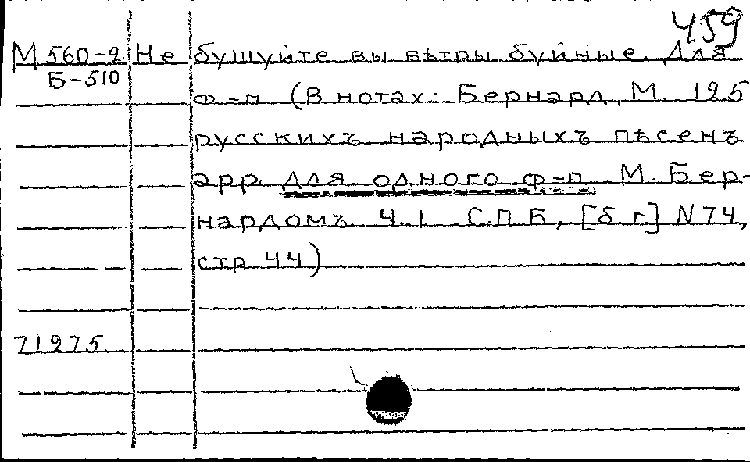 459
М 560-2 Не бушуйте вы вѣтры буйные. Для
Б-510
ф-п (В нотах: Бернард, М. 125
русскихъ народныхъ пѣсенъ
арр. для одного ф-п. М. Бер-
нардомъ Ч. I. С.П.Б., [б. г.] N 74,
стр. 44)
71975